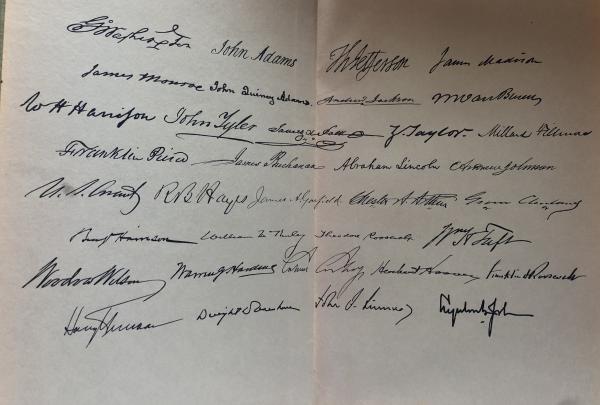 G Washington John Adams Th Jefferson James Madison
James Monroe John Quincy Adams Andrew Jackson M Van Buren
W H Harrison John Tyler James K. Polk Z. Taylor. Millard Fillmore
Franklin Pierce James Buchanan Abraham Lincoln Andrew Johnson
U. S. Grant R B Hayes James A. Garfield Chester A. Arthur Grover Cleveland
Benj Harrison William McKinley Theodore Roosevelt Wm H Taft
Woodrow Wilson Warren G Harding Calvin Coolidge Herbert Hoover Franklin D Roosevelt
Harry Truman Dwight D Eisenhower John F. Kennedy Lyndon B. Johnson